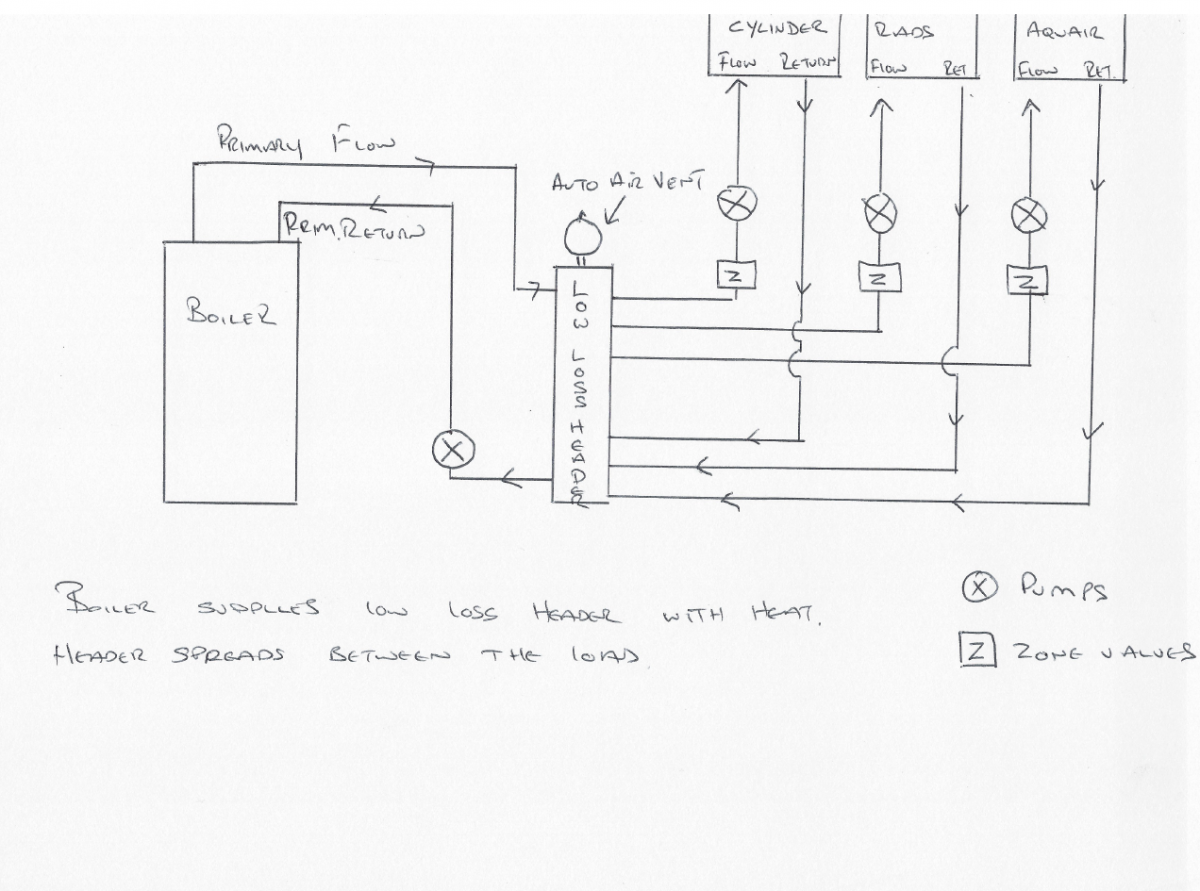 CYLINDER
FLOW RETURN
RADS
FLOW RET
AQUAIR
FLOW RET.
PRIMARY FLOW
PRIM. RETURN
AUTO AIR VENT
BOILER
LOW LOSS HEADER
Z
Z
Z
BOILER SUPPLIES LOW LOSS HEADER WITH HEAT.
HEADER SPREADS BETWEEN THE LOAD
PUMPS
Z ZONE VALVES